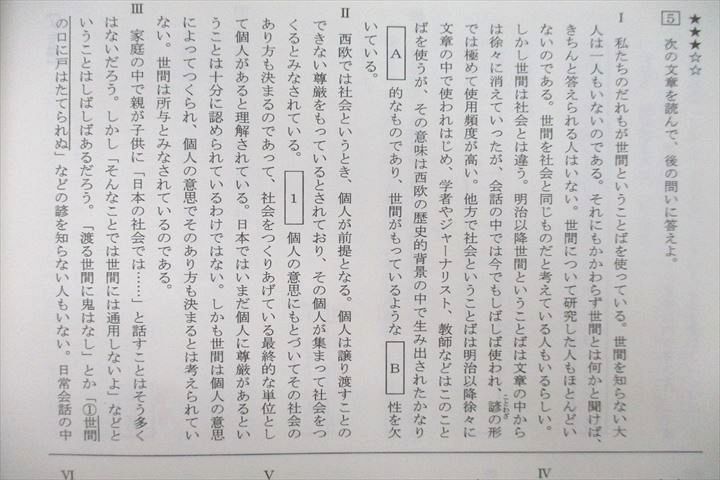 ★★★☆☆
5 次の文章を読んで、後の問いに答えよ。
Ⅰ 私たちのだれもが世間ということばを使っている。世間を知らない大
人は一人もいないのである。それにもかかわらず世間とは何かと聞けば、
きちんと答えられる人はいない。世間について研究した人もほとんどい
ないのである。世間を社会と同じものだと考えている人もいるらしい。
しかし世間は社会とは違う。明治以降世間ということばは文章の中から
は徐々に消えていったが、会話の中では今でもしばしば使われ、諺の形
ことわざ
では極めて使用頻度が高い。他方で社会ということばは明治以降徐々に
文章の中で使われはじめ、学者やジャーナリスト、教師などはこのこと
ばを使うが、その意味は西欧の歴史的背景の中で生み出されたかなり
A 的なものであり、世間がもっているような B 性を欠
いている。
Ⅱ 西欧では社会というとき、個人が前提となる。個人は譲り渡すことの
できない尊厳をもっているとされており、その個人が集まって社会をつ
くるとみなされている。 1 個人の意思にもとづいてその社会の
あり方も決まるのであって、社会をつくりあげている最終的な単位とし
て個人があると理解されている。日本ではいまだ個人に尊厳があるとい
うことは十分に認められているわけではない。しかも世間は個人の意思
によってつくられ、個人の意思でそのあり方も決まるとは考えられてい
ない。世間は所与とみなされているのである。
Ⅲ 家庭の中で親が子供に「日本の社会では……」と話すことはそう多く
はないだろう。しかし「そんなことでは世間には通用しないよ」などと
いうことはしばしばあるだろう。「渡る世間に鬼はなし」とか「①世間
の口に戸はたてられぬ」などの諺を知らない人もいない。日常会話の中
Ⅳ
Ⅴ
Ⅵ